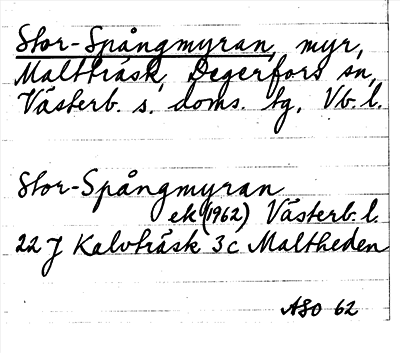 Stor-Spångmyran, myr,
Maltträsk, Degerfors sn,
Västerb. s. doms. tg, Vb. l.
Stor-Spångmyran
ek (1962) Västerb. l.
22 J Kalvträsk 3c Maltheden
ASO 62